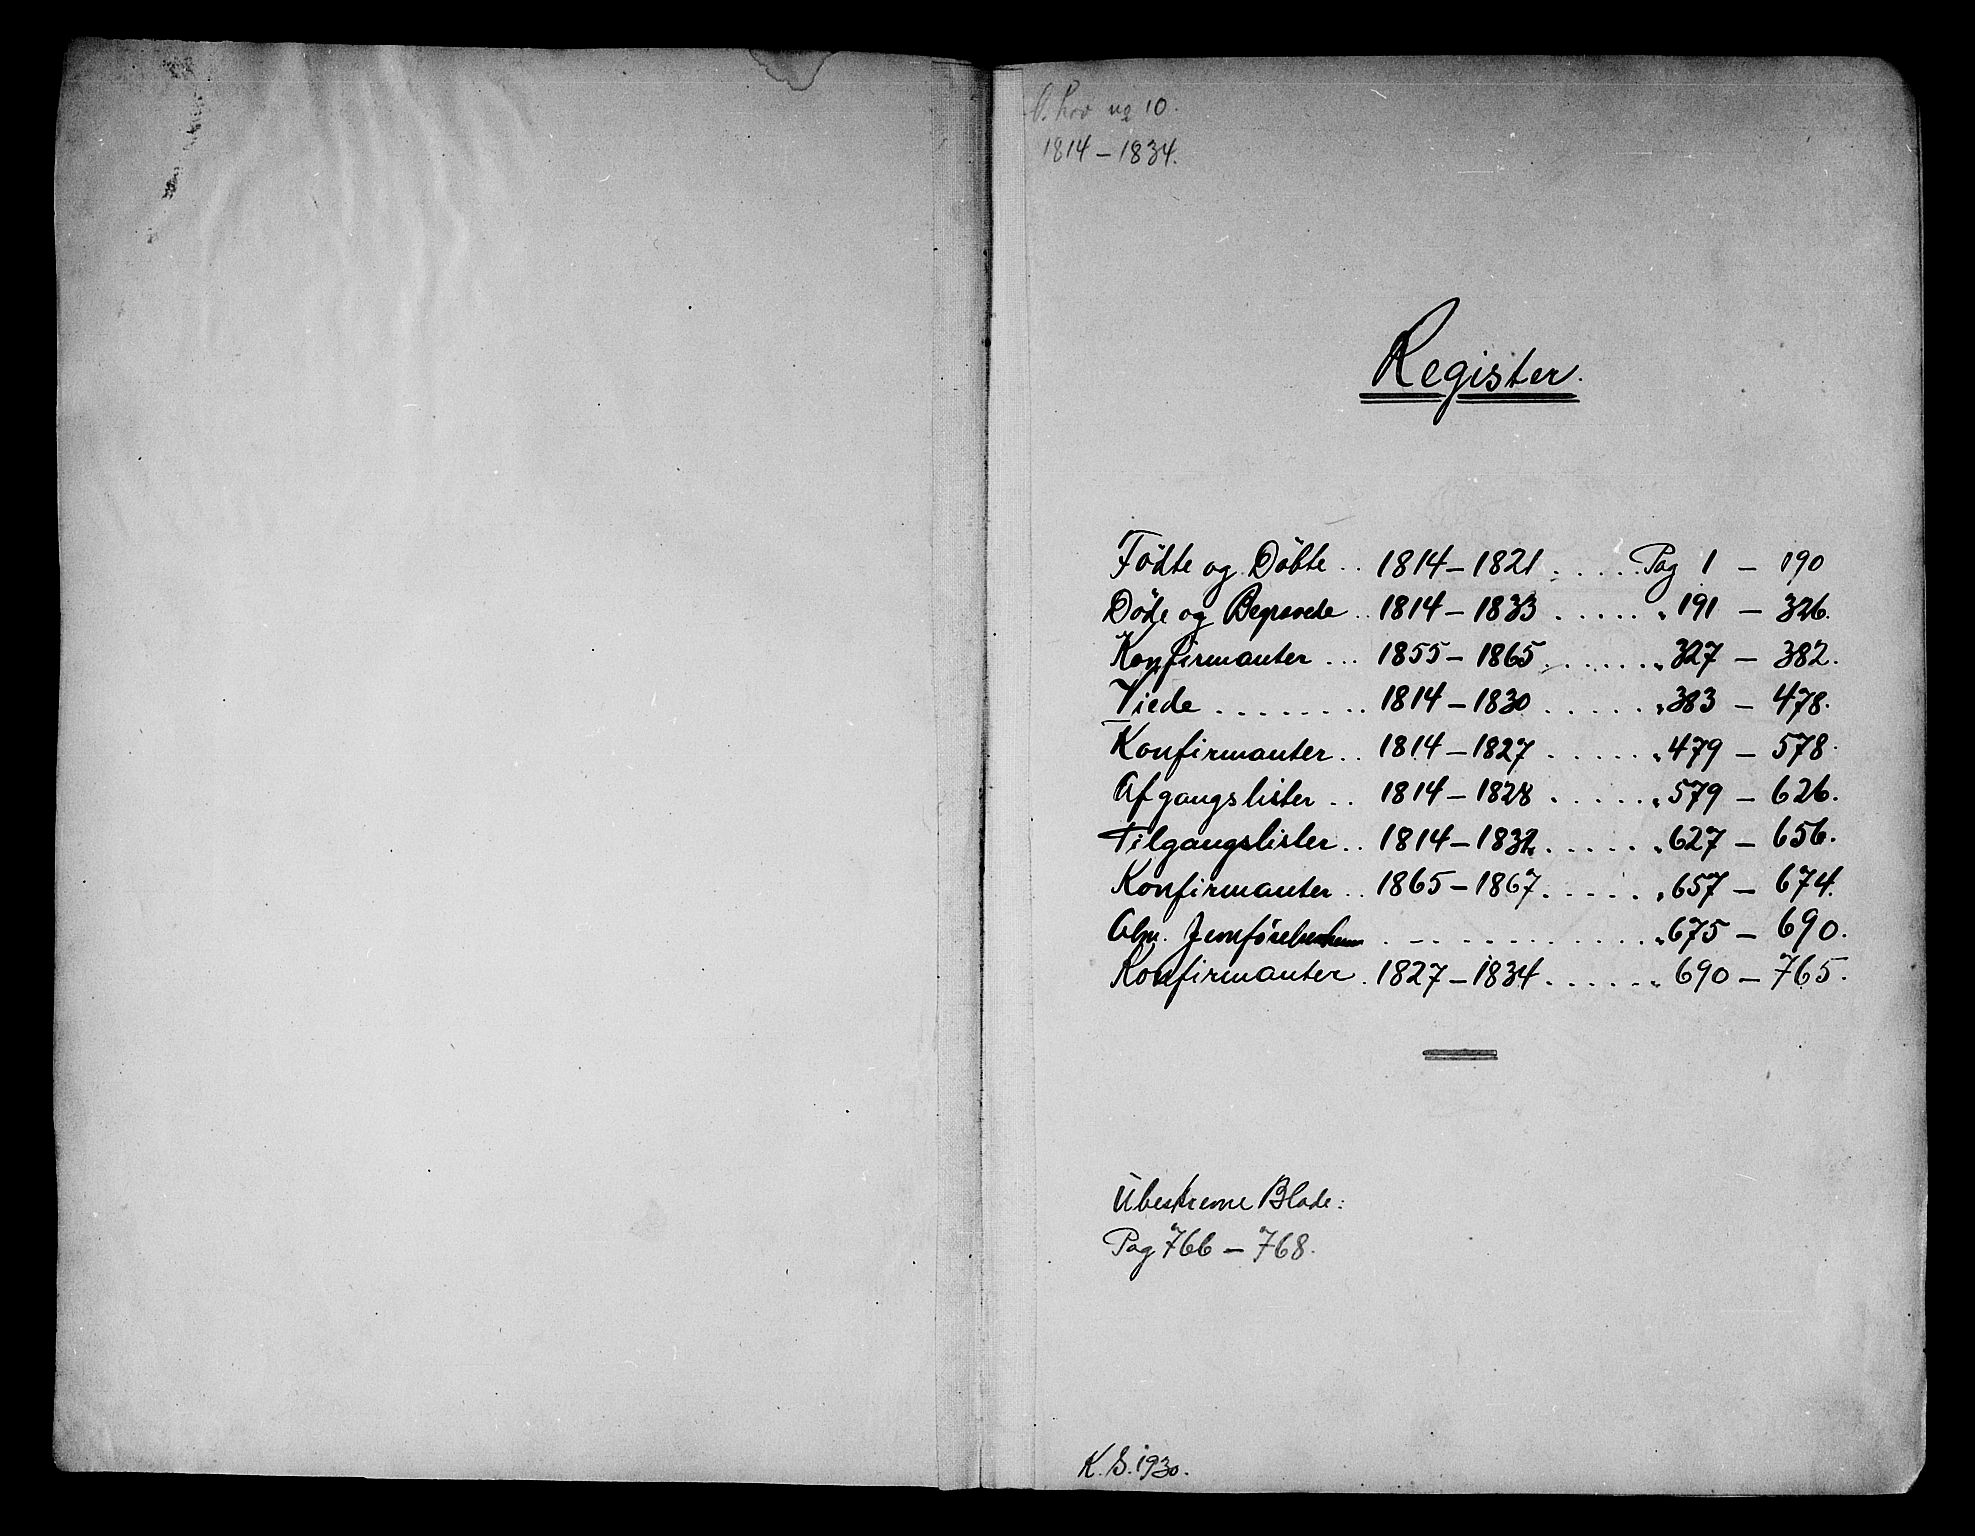 nq 10.
1814 – 1834.
Register.
Födte og Döbte .. 1814 – 1821 ..... Pag 1 – 190
Döde og Begravede .. 1814 – 1833 ..... " 191 – 326.
Konfirmanter ... 1855 – 1865 ....... " 327 – 382.
Viede ........ 1814 – 1830 ...... " 383 – 478.
Konfirmanter .. 1814 – 1827 ...... " 479 – 578.
Afgangslister .. 1814 – 1828 ...... " 579 – 626.
Tilgangslister .. 1814 – 1832 ...... " 627 – 656.
Konfirmanter .. 1865 – 1867 ...... " 657 – 674.
Alm. ........... " 675 – 690.
Konfirmanter . 1827 – 1834 ...... " 690 – 765.
Ubeskrevne Blade:
Pag 766 – 768.
K. S. 1930.